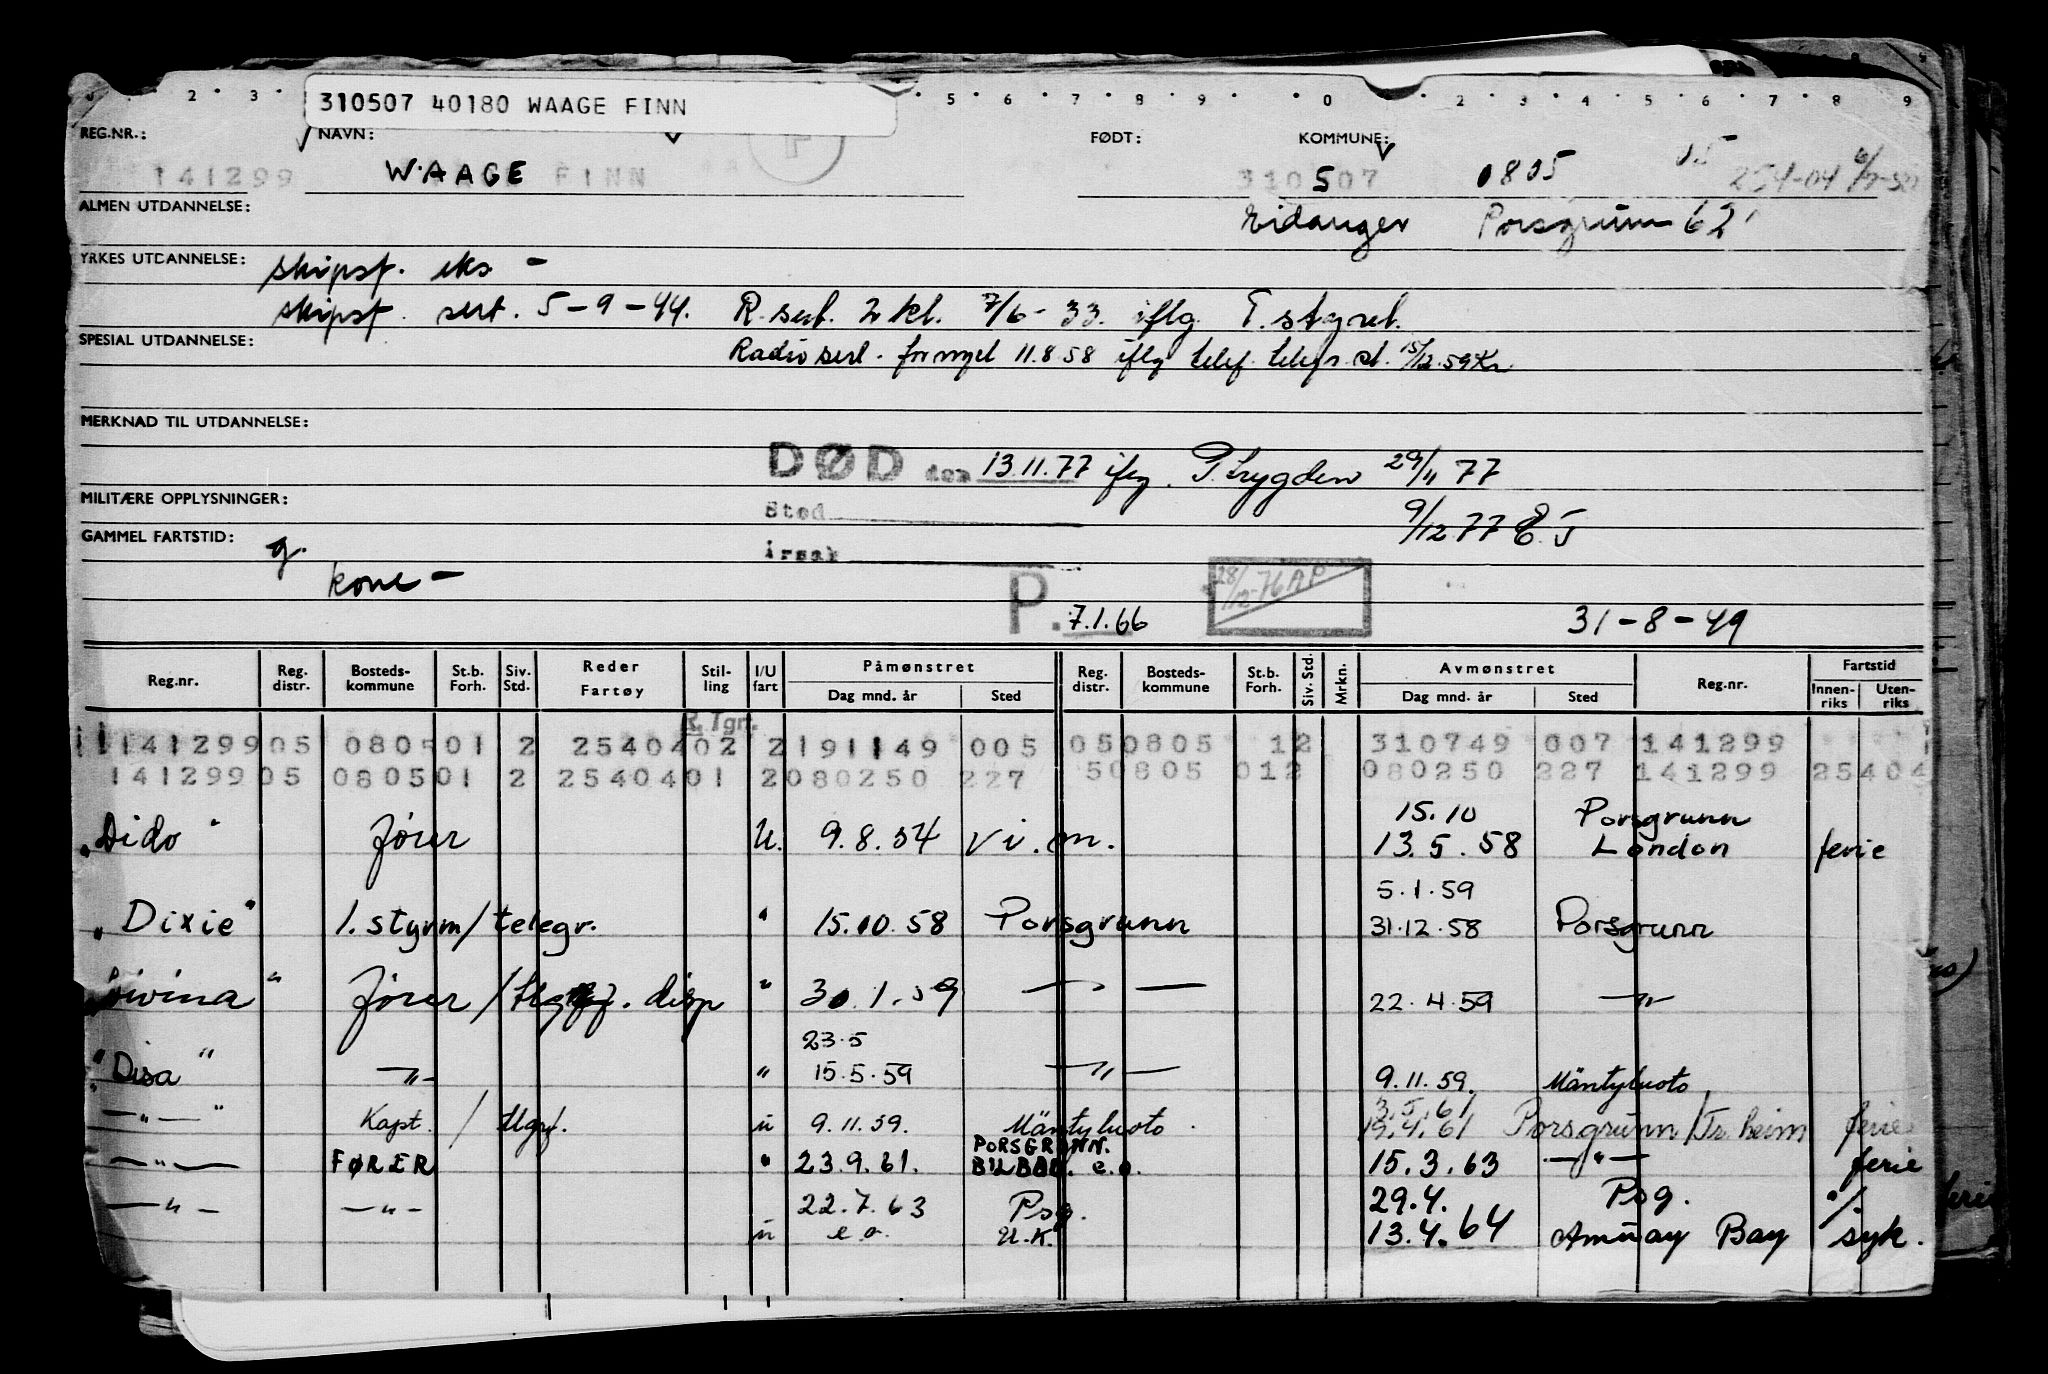 310507 40180 WAAGE FINN
2 3 5 6 7 8 9 0 2 3 4 5 6 7 8 9
REG.NR.: NAVN: FØDT: KOMMUNE:
141299 WAAGE FINN 310507 0805
Eidanger Porsgrunn 62
ALMEN UTDANNELSE:
YRKES UTDANNELSE: skipsf. eks -
skipsf. sert. 5-9-44. R. sert. 2 kl. 7/6-33. iflg T. styret.
SPESIAL UTDANNELSE: Radiosert. fornyet 11.8.58 iflg telef. telegr. st. 15/12.59 Kr
MERKNAD TIL UTDANNELSE:
DØD den 13.11.77 iflg. P.trygden 29/11 77
MILITÆRE OPPLYSNINGER: Sted
9/12 77 E.J
GAMMEL FARTSTID: g. Årsak
kone -
P. 7.1.66 28/12-76 31-8-49
Reg.nr. Reg. distr. Bosteds-kommune St.b. Forh. Siv. Std. Reder Fartøy Stil-ling I/U fart Påmønstret Dag mnd. år Sted Reg. distr. Bosteds-kommune St.b. Forh. Siv. Std. Mrkn. Avmønstret Dag mnd. år Sted Reg.nr. Fartstid Innen-riks Uten-riks
R. Tgr.
141299 05 0805 01 2 25404 02 2 191149 005 05 0805 12 310749 007 141299
141299 05 0805 01 2 25404 01 2 080250 227 5 0805 012 080250 227 141299 25404
15.10 Porsgrunn
"Dido" fører U. 9.8.54 Vi.m. 13.5.58 London ferie
5.1.59
"Dixie" 1. styrm/telegr. " 15.10.58 Porsgrunn 31.12.58 Porsgrunn
Divina" fører / disp " 30.1.59 — — 22.4.59 —"—
23.5
"Disa" —"— " 15.5.59 —"— 9.11.59. Mäntyluoto
3.5.61
—"—" Kapt. / tlgrf. u 9.11.59. Mäntyluoto. 19.4.61 Porsgrunn/Tr.heim ferie
PORSGRUNN.
—"— FØRER " 23.9.61. BILBAO. e.o. 15.3.63 —"— ferie
—"— —"— 22.7.63 Psg. 29.4. Psg.
u e.o. U.K. 13.4.64 Amuay Bay syk.
ferie